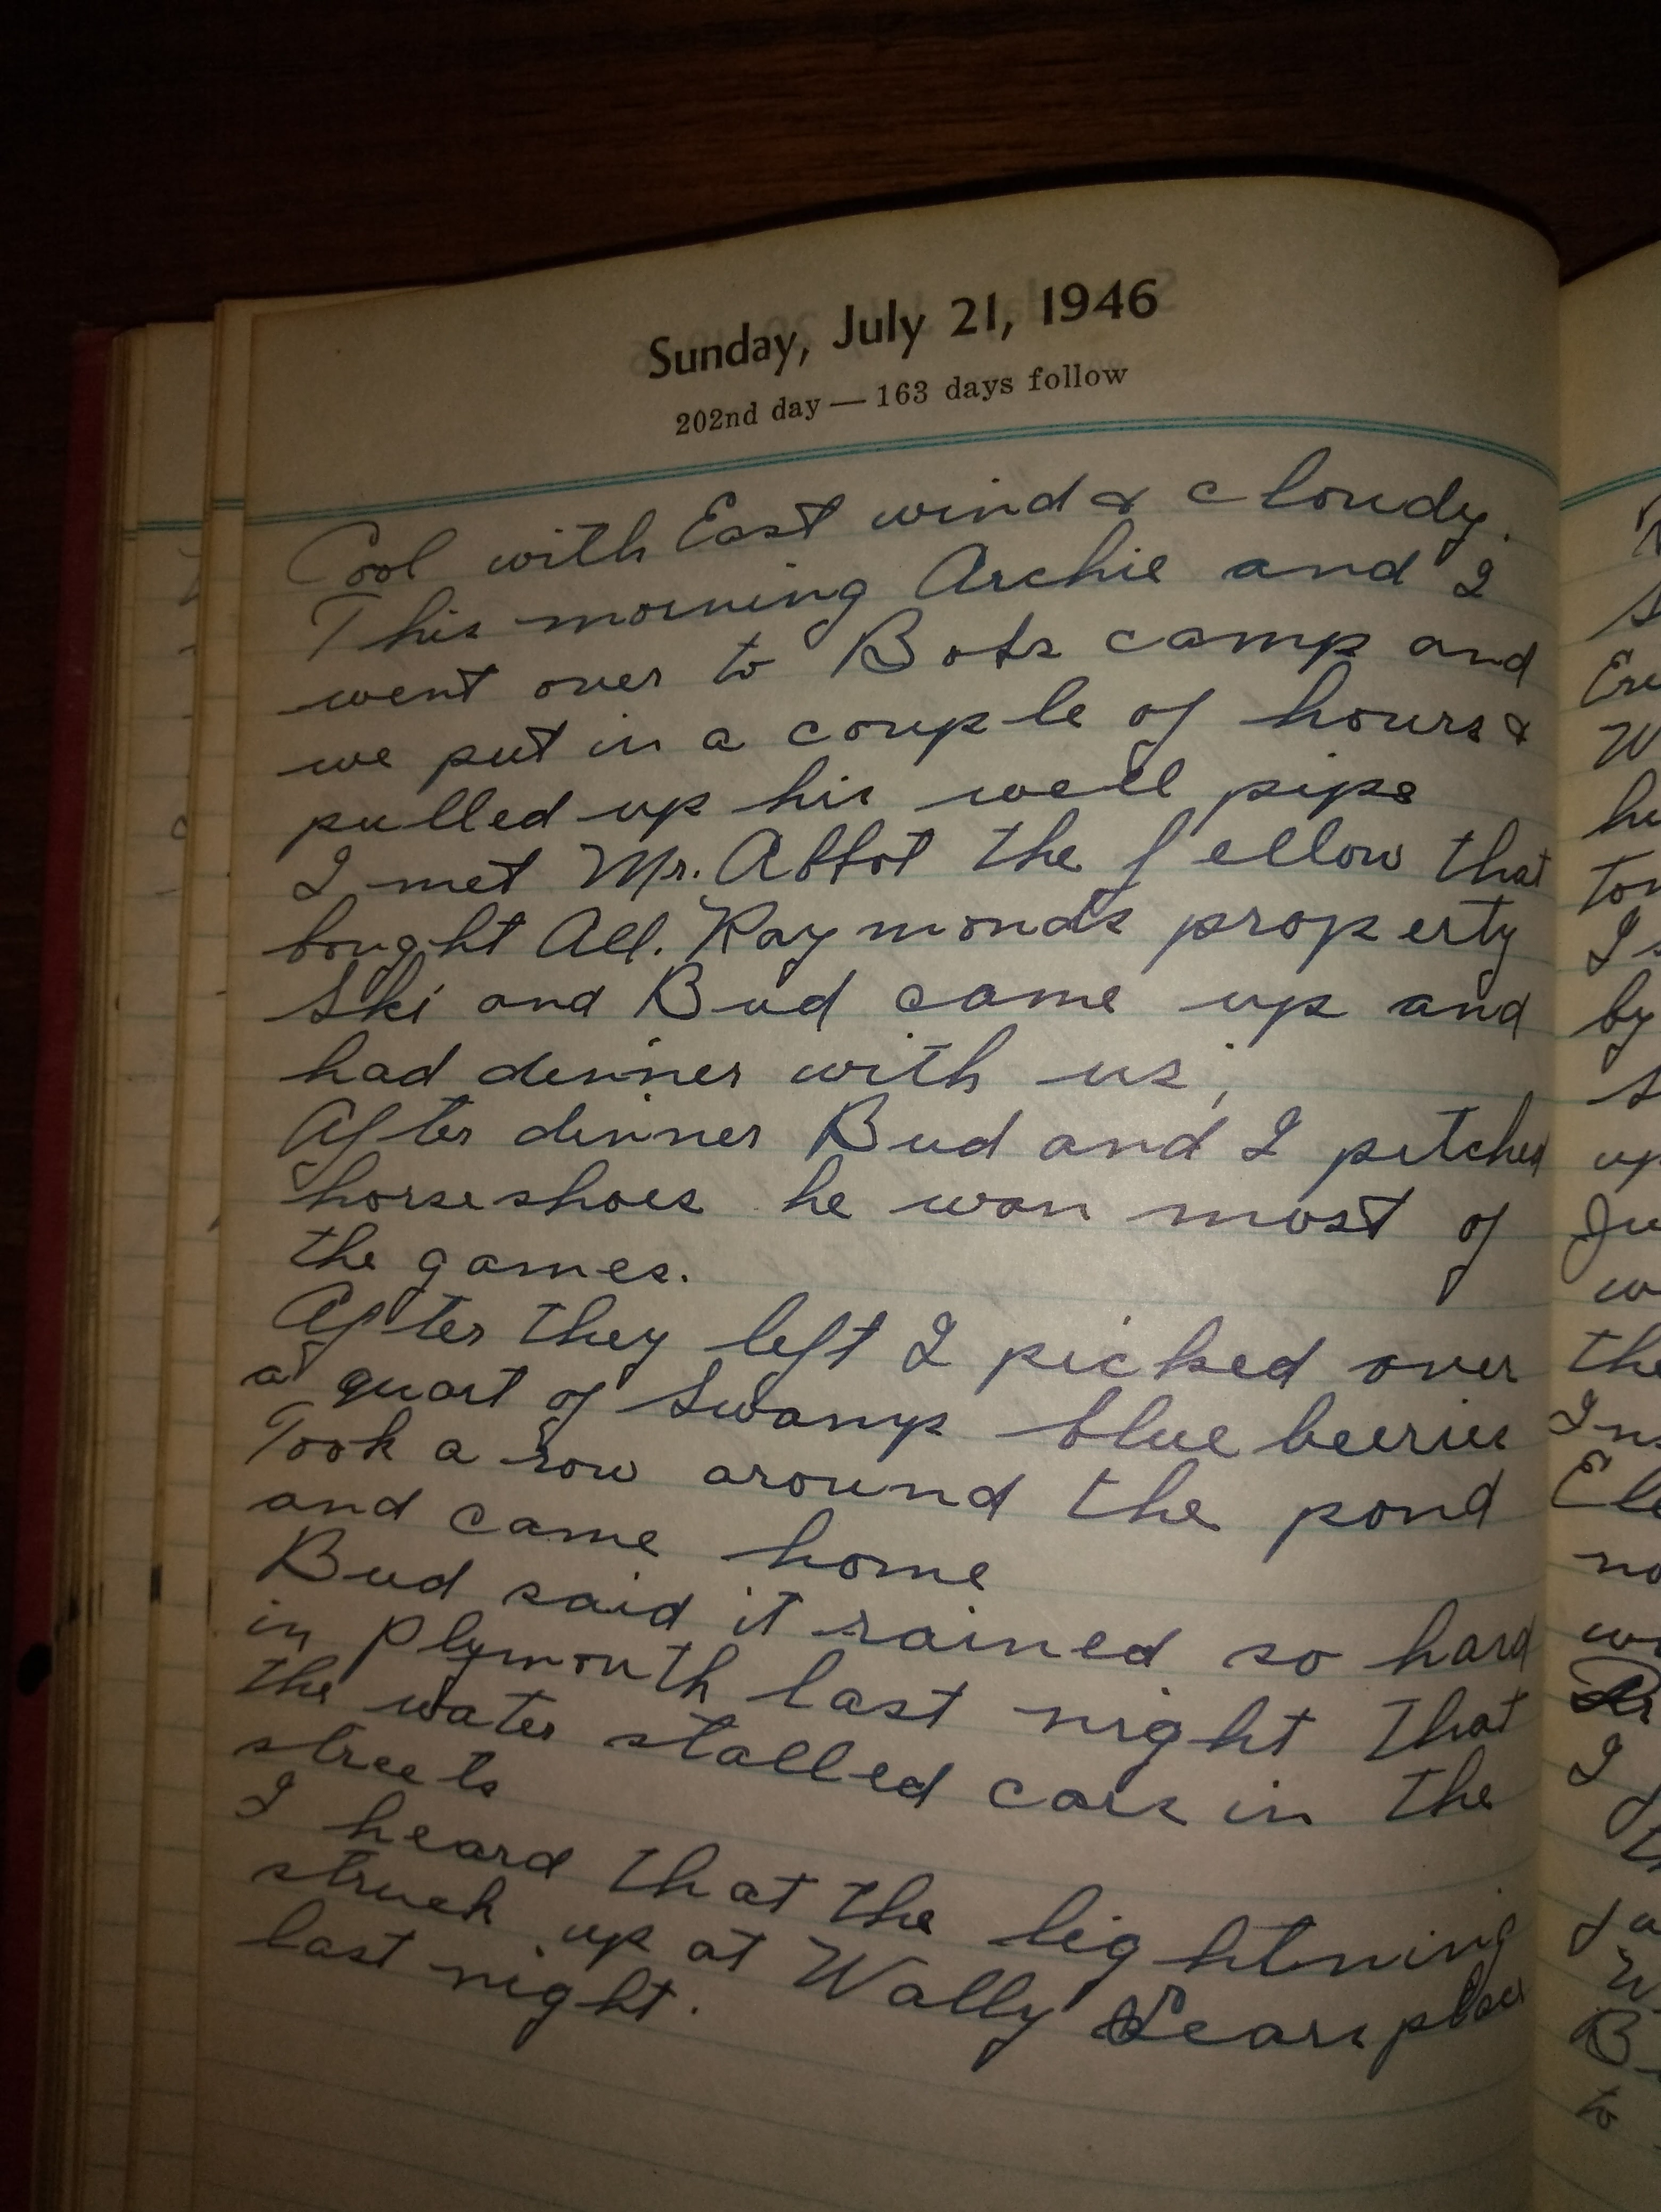 Sunday, July 21, 1946
202nd day — 163 days follow
Cool with East wind & cloudy.
This morning Archie and I
went over to Bobs camp and
we put in a couple of hours &
pulled up his well pipe
I met Mr. Abbot the fellow that
bought All. Raymonds property
Ski and Bud came up and
had dinner with us,
After dinner Bud and I pitched
horseshoes he won most of
the games.
After they left I picked over
a quart of Swamp blue beeries
Took a row around the pond
and came home
Bud said it rained so hard
in Plymouth last night that
the water stalled cars in the
streets
I heard that the lightning
struck up at Wally Sears place
last night.